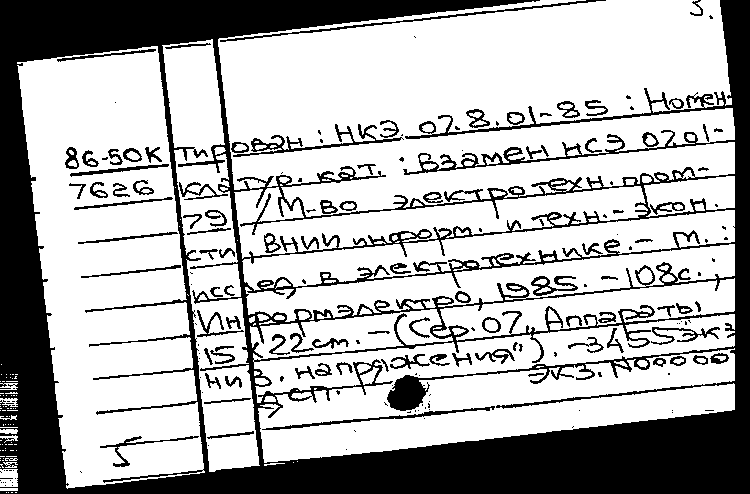 3.
86-50К тирован : НКЭ 07.8.01-85 : Номен-
7626 клатур. кат. : Взамен НСЭ 07.01-
79 / М-во электротехн. пром-
сти, ВНИИ информ. и техн.-экон.
исслед. в электротехнике. - М. :
Информэлектро, 1985. - 108с. ;
15х22см. - (Сер. 07 „Аппараты
низ. напряжения"). - 3455экз
дсп. экз. N00000
5